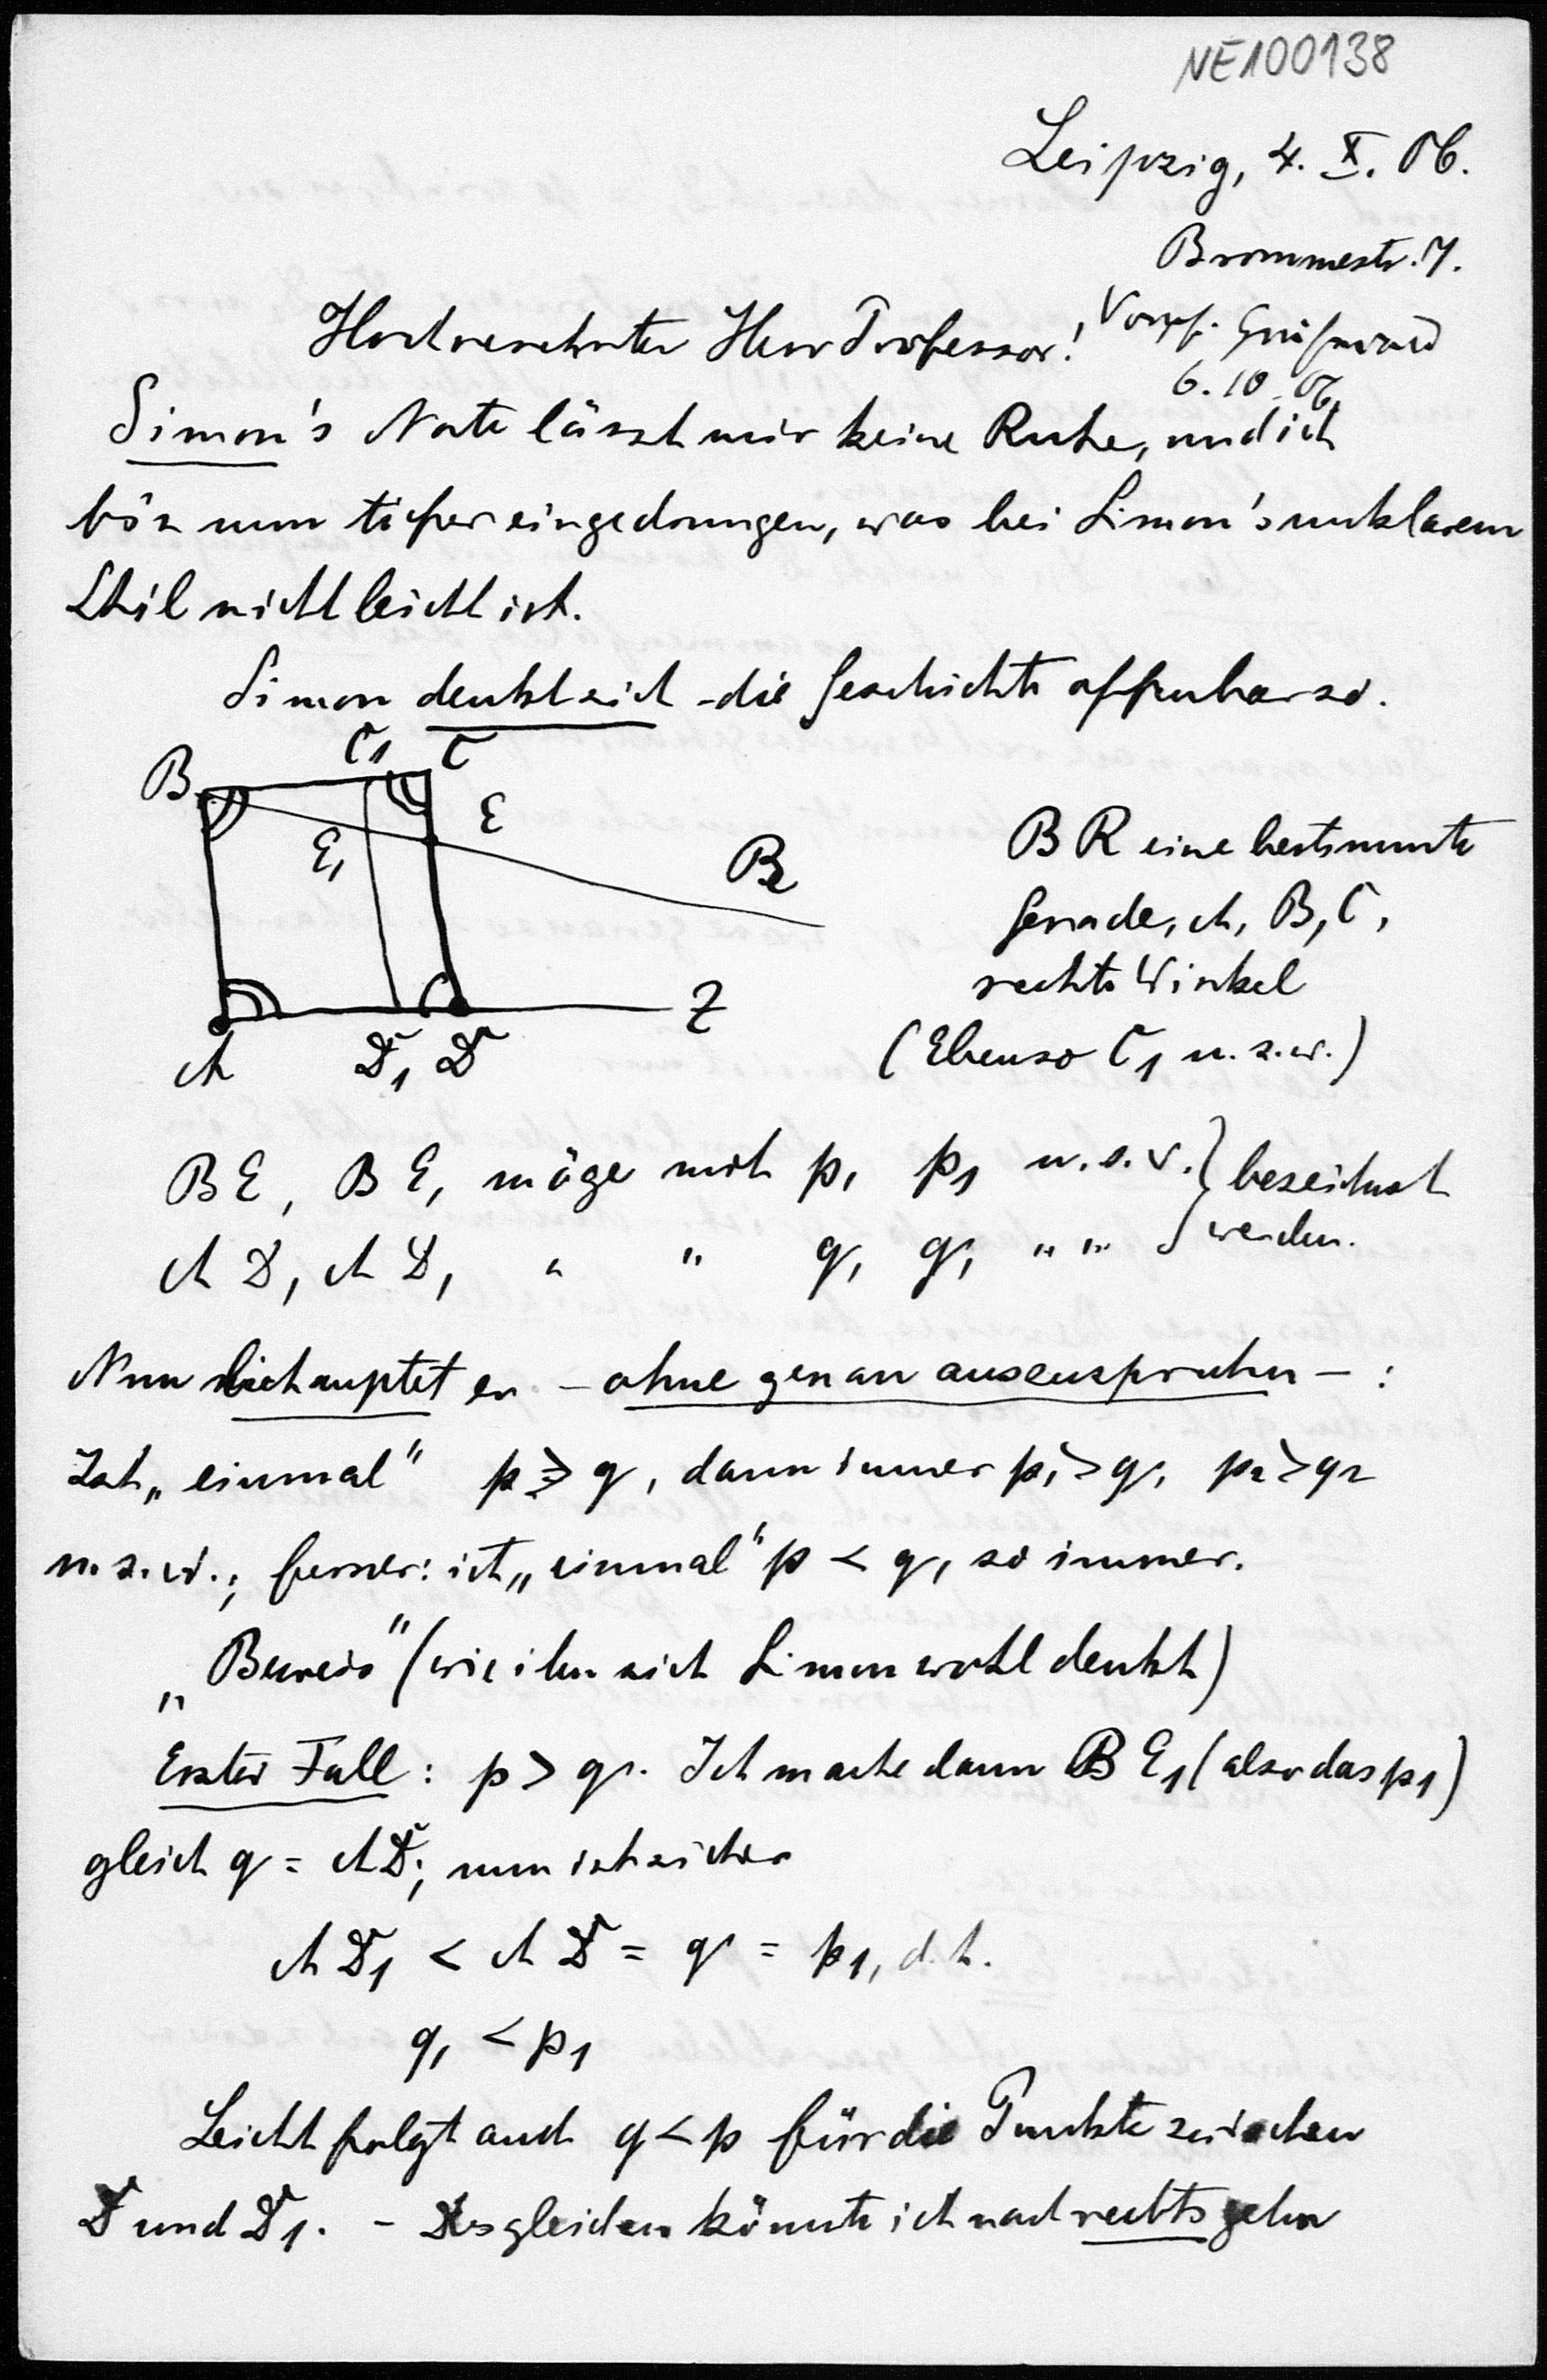 NE100138
Leipzig, 4. X. 06.
Brommestr. 7.
Hochverehrter Herr Professor!
Empf. Greifswald
6. 10. 06.
Simon's Note lässt mir keine Ruhe, und ich
bin nun tiefer eingedrungen, was bei Simon's unklarem
Stil nicht leicht ist.
Simon denkt sich die Geschichte offenbar so.
B C1 C
E1 E
R
A D1 D Z
B R eine bestimmte
Gerade, A, B, C,
rechte Winkel
(Ebenso C1 u. s. w.)
BE, BE, möge mit p, p1 u. s. w. } bezeichnet
AD, AD, " " q, q, " " } werden.
Nun behauptet er – ohne genau auszusprechen – :
Ist „einmal" p ≧ q, dann immer p1 > q1 p2 > q2
u. s. w.; ferner: ist „einmal" p < q, so immer.
„Beweis" (wie ihn sich Simon wohl denkt)
Erster Fall: p > q. Ich mache dann BE1 (also das p1)
gleich q = AD; nun ist sicher
AD1 < AD = q = p1, d. h.
q1 < p1
Leicht folgt auch q < p für die Punkte zwischen
D und D1. – Desgleichen könnte ich nach rechts gehn